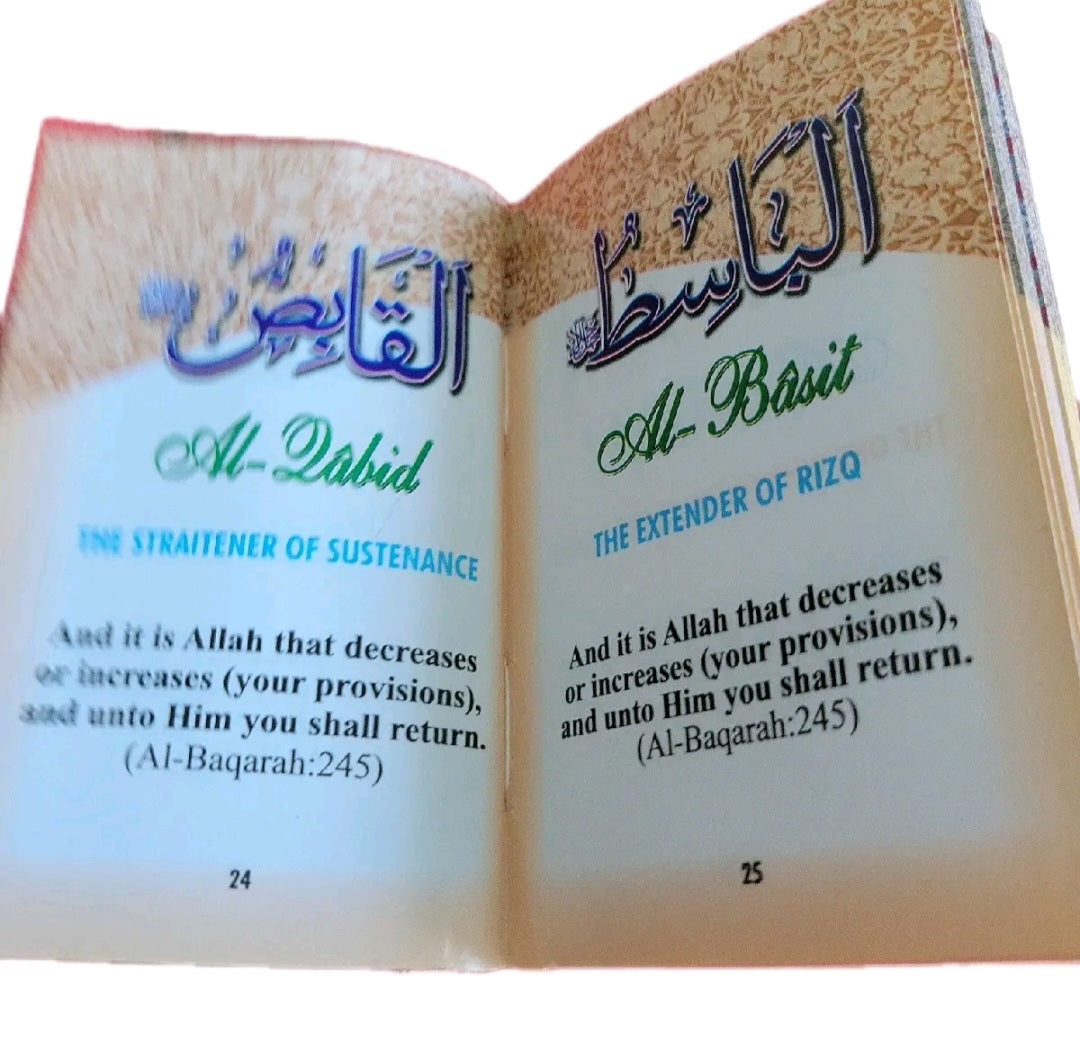 اَلْقَابِضُ
Al-Qâbid
THE STRAITENER OF SUSTENANCE
And it is Allah that decreases
or increases (your provisions),
and unto Him you shall return.
(Al-Baqarah:245)
24
اَلْبَاسِطُ
Al-Bâsit
THE EXTENDER OF RIZQ
And it is Allah that decreases
or increases (your provisions),
and unto Him you shall return.
(Al-Baqarah:245)
25